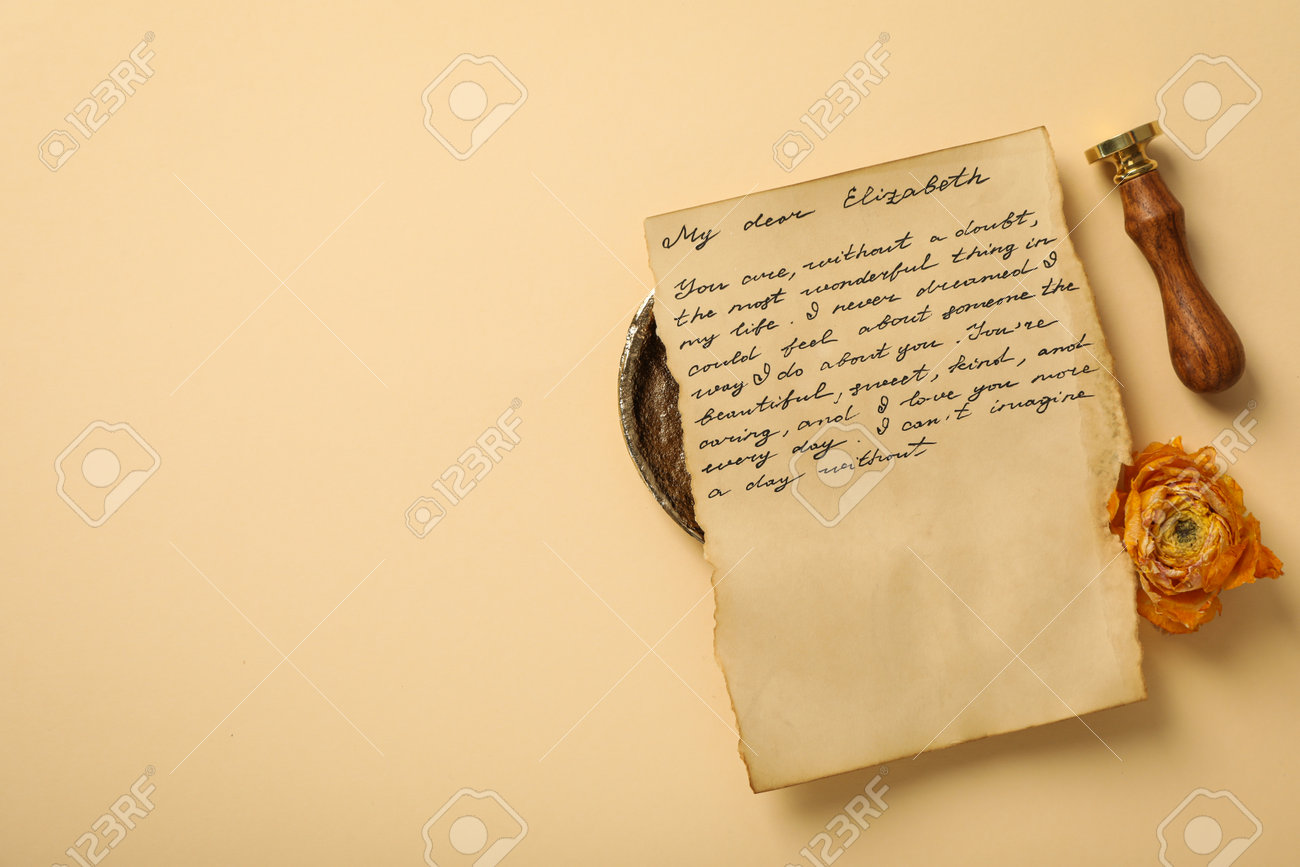 My dear Elizabeth
You are, without a doubt,
the most wonderful thing in
my life. I never dreamed I
could feel about someone the
way I do about you. You're
beautiful, sweet, kind, and
caring, and I love you more
every day. I can't imagine
a day without
123RF
123RF
123RF
123RF
123RF